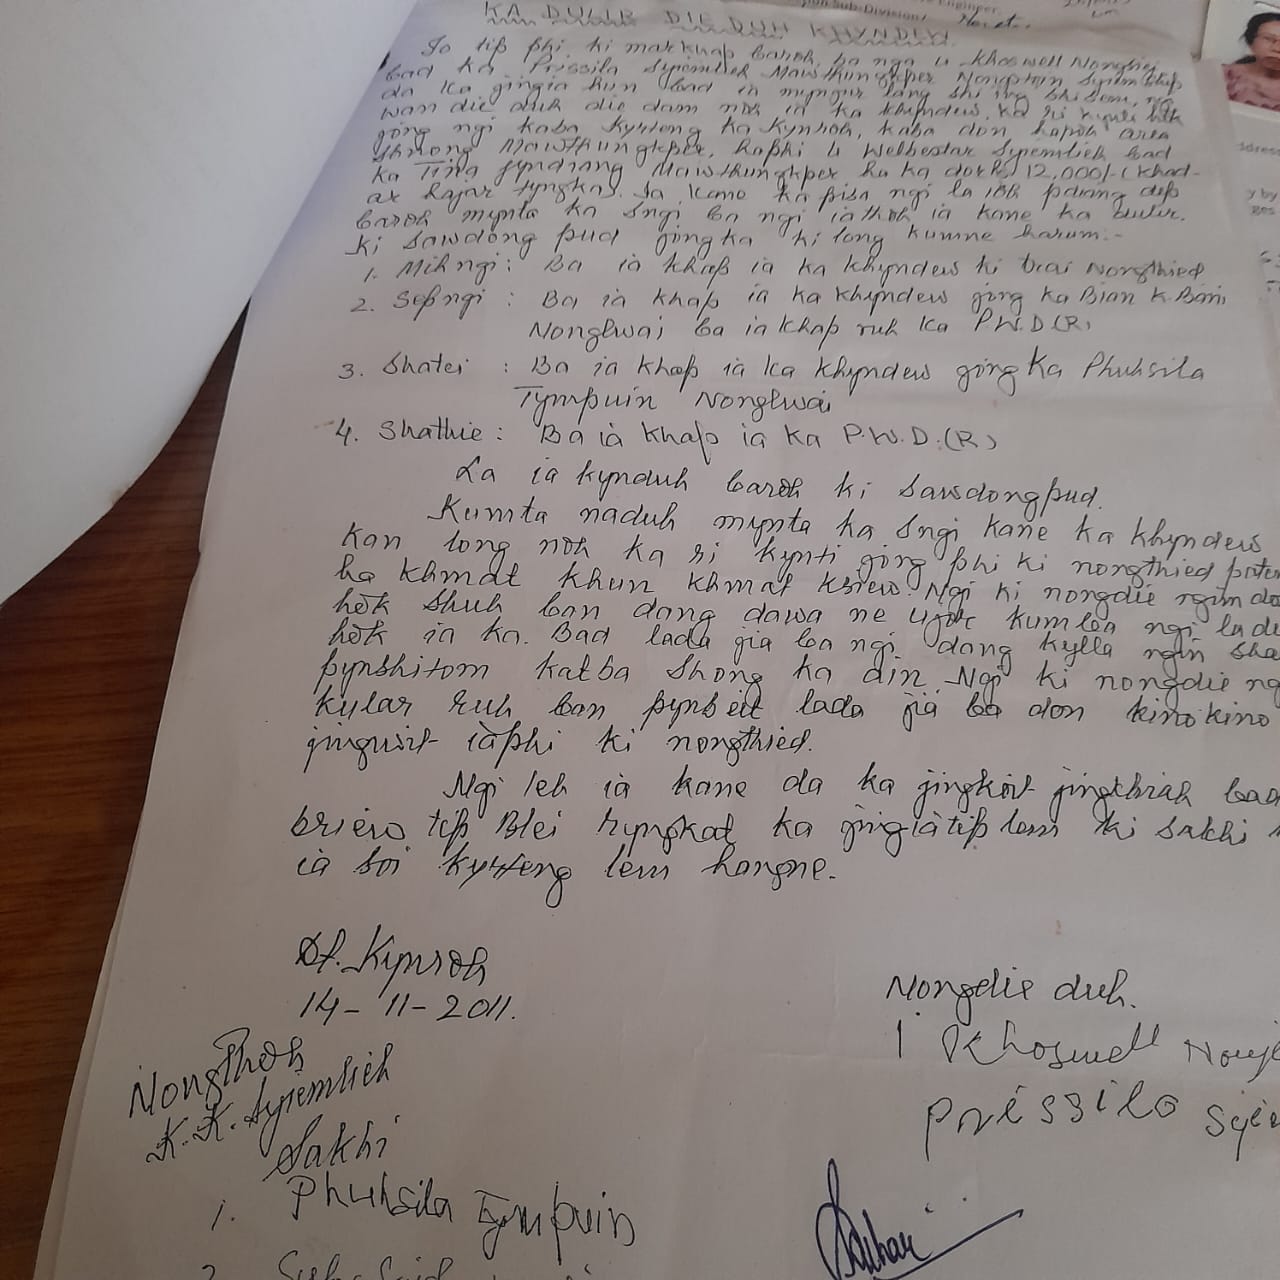 Engineer,
Sub-Division,
KA DULIR DIE DUH KHYNDEW
Jo tip phi ki markhap baroh, ba nga u Khoswell
bad ka Prissila Syiemlieh Mawthungkper
da ka jingia hun bad ia mynjur lang shi ing shi sem,
wan die duh die dam noh ia ka khyndew, ka ri kynti
jong ngi kaba kyrteng ka Kynroh, kaba don hapoh area
shnong Mawthungkper, haphi u Welbestar Syiemlieh bad
ka Tina Jyndiang Mawthungkper ha ka dor 12,000/- (khad-
ar hajar tyngka). Ia kane ka pisa ngi la ioh pdiang dep
baroh mynta ka sngi ba ngi iathoh ia kane ka dulir.
ki sawdong pud jong ka ki long kumne harum:-
1. Mihngi: Ba ia khap ia ka khyndew ki trai Nongthied
2. Sepngi : Ba ia khap ia ka khyndew jong ka Bian K. Bani
Nonglwai ba ia khap ruh ka P.W.D.(R)
3. Shatei : Ba ia khap ia ka khyndew jong ka Phuhsila
Tympuin Nonglwai
4. Shathie : Ba ia khap ia ka P.W.D.(R)
La ia kynduh baroh ki sawdongpud.
Kumta naduh mynta ka sngi kane ka khyndew
kan long noh ka ri kynti jong phi ki nongthied
ha khmat khun khmat ksiew. Ngi ki nongdie ngim don
hok shuh ban dang dawa ne kumba ngi la
hok ia ka. Bad lada jia ba ngi dang kylla ngin
pynshitom katba shong ka ain. Ngi ki nongdie
kular ruh ban pynbeit lada jia ba don kinokino
jinguwit iaphi ki nongthied.
Ngi leh ia kane da ka jingkoit jingkhiah bad
briew tip Blei ryngkat ka jingiatip lem ki sakhi
ia soi kyrteng lem hangne.
Dt. Kynroh
14-11-2011.
Nongdie duh.
1 Khoswell
Prissila
Nongthoh
K.K. Syiemlieh
Sakhi
1. Phuhsila Tympuin
2.